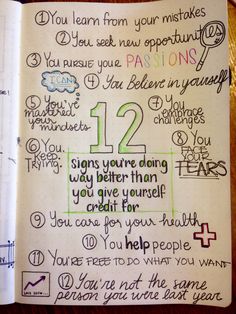 ①You learn from your mistakes
②You seek new opportunities
③YOU PURSUE YOUR PASSIONS
I CAN
④You Believe in yourself
⑤You've
mastered
your
mindsets
⑦You
embrace
challenges
12
⑥You
keep
Trying.
⑧YOU
FACE
YOUR
FEARS
signs you're doing
way better than
you give yourself
credit for
⑨You care for your health
⑩You help people
⑪YOU'RE FREE TO DO WHAT YOU WANT
⑫You're not the same
person you were last year